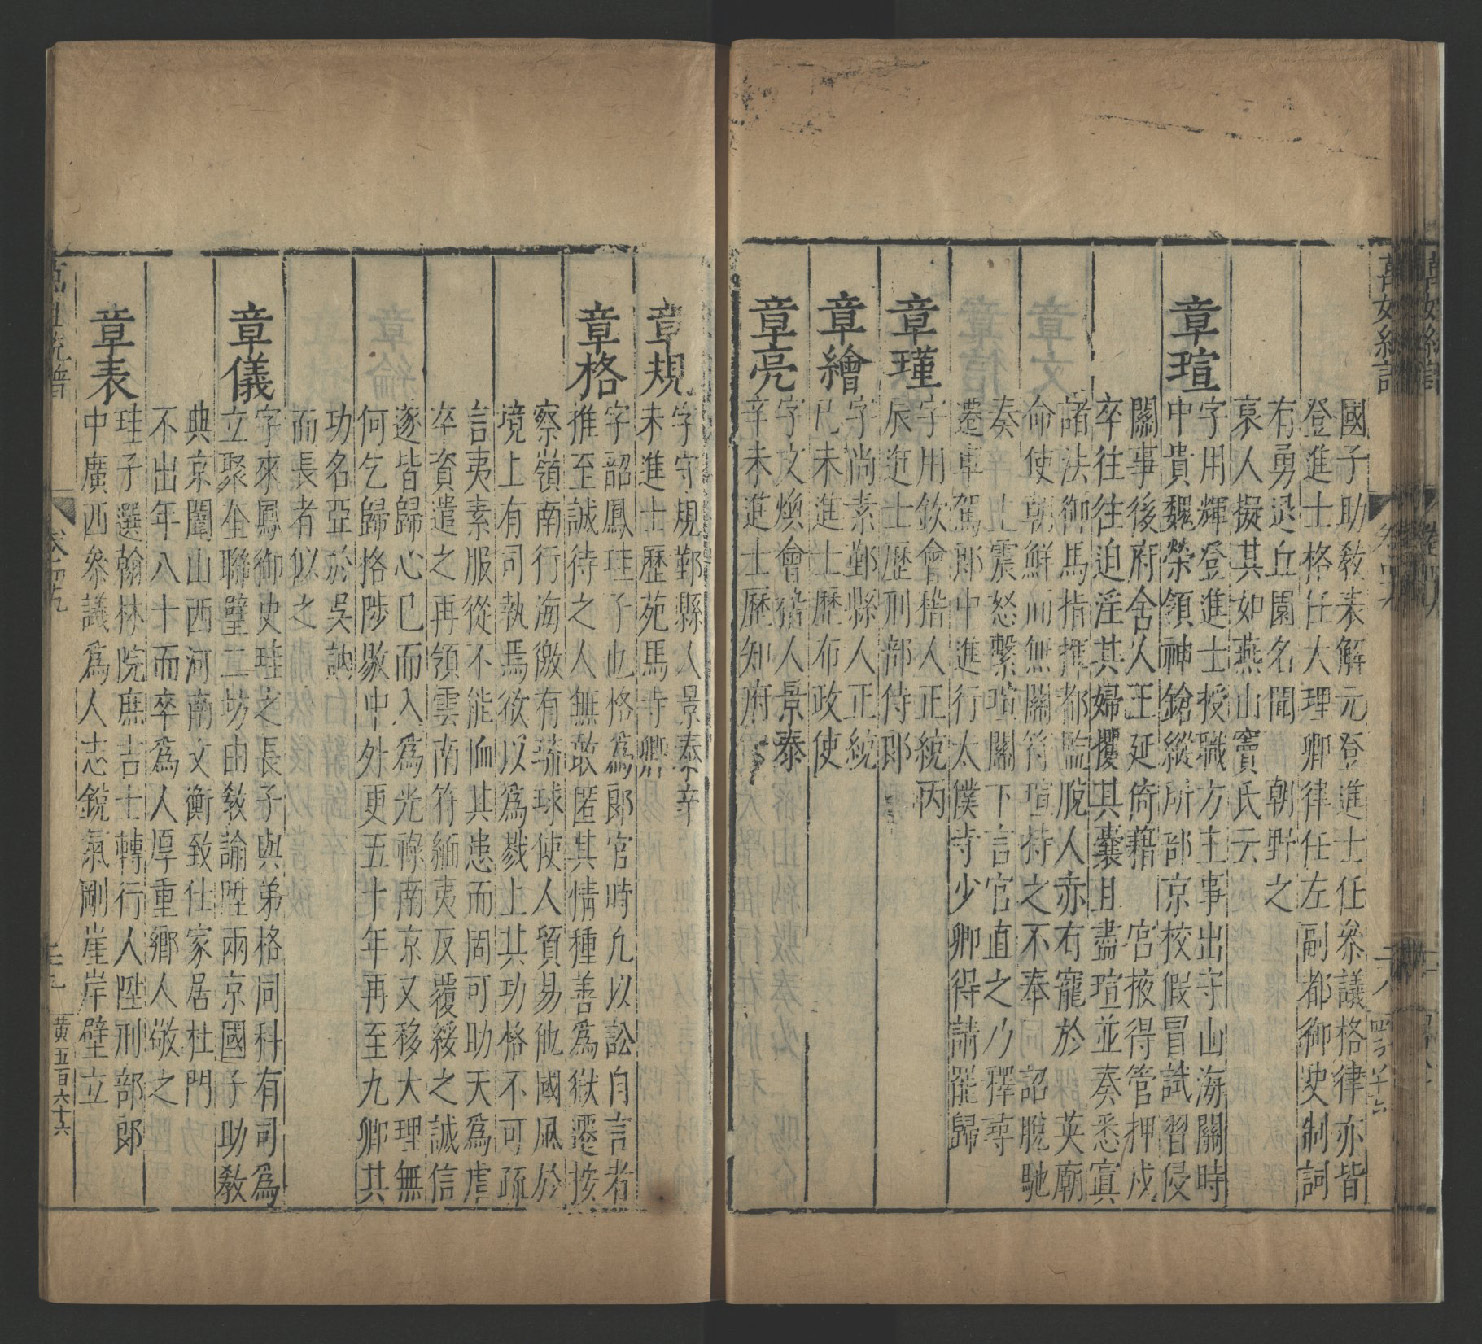 國子助教未解元登進士任叅議格律亦皆
登進士格任大理卿律任左副都御史制詞
有勇退丘園名聞 朝野之
襃人擬其如燕山竇氏云
章瑄
字用輝登進士授職方主事出守山海關時
中貴魏榮領神鎗縱所部京校假冒試習侵
關事後府舍人王延倚藉 宮掖得管押戍
卒往往迫淫其婦攫其橐且盡瑄並奏悉寘
諸法御馬指揮都監脫人亦有寵於 英廟
命使朝鮮而無關符瑄持之不奉 詔脫馳
奏 上震怒繫瑄 闕下言官直之乃釋尋
遷車駕郎中進行太僕寺少卿得請罷歸
章瑾
字用欽會稽人正統丙
辰進士歷刑部侍郎
章繪
字尚素鄞縣人正統
己未進士歷布政使
章亮
字文煥會稽人景泰
辛未進士歷知府
章規
字守規鄞縣人景泰辛
未進士歷苑馬寺卿
章格
字韶鳳珪子也格爲郎官時凢以訟自言者
推至誠待之人無敢匿其情種善爲獄遷按
察嶺南行海徼有琉球使人貿易他國風於
境上有司執焉欲以爲戮上其功格不可疏
言夷素服從不能恤其患而固可助天爲虐
卒資遣之再領雲南符緬夷反覆綏之誠信
逐皆歸心巳而入爲光祿南京又移大理無
何乞歸格陟敭中外更五十年再至九卿其
功名亞於吳訥
而長者似之
章儀
字來鳳御史珪之長子與弟格同科有司爲
立聚奎聯璧二坊由敎諭陞兩京國子助敎
典京闈山西河南文衡致仕家居杜門
不出年八十而卒爲人厚重鄉人敬之
章表
珪子選翰林院庶吉士轉行人陞刑部郎
中廣西叅議爲人志銳氣剛崖岸壁立
黃五百六十六